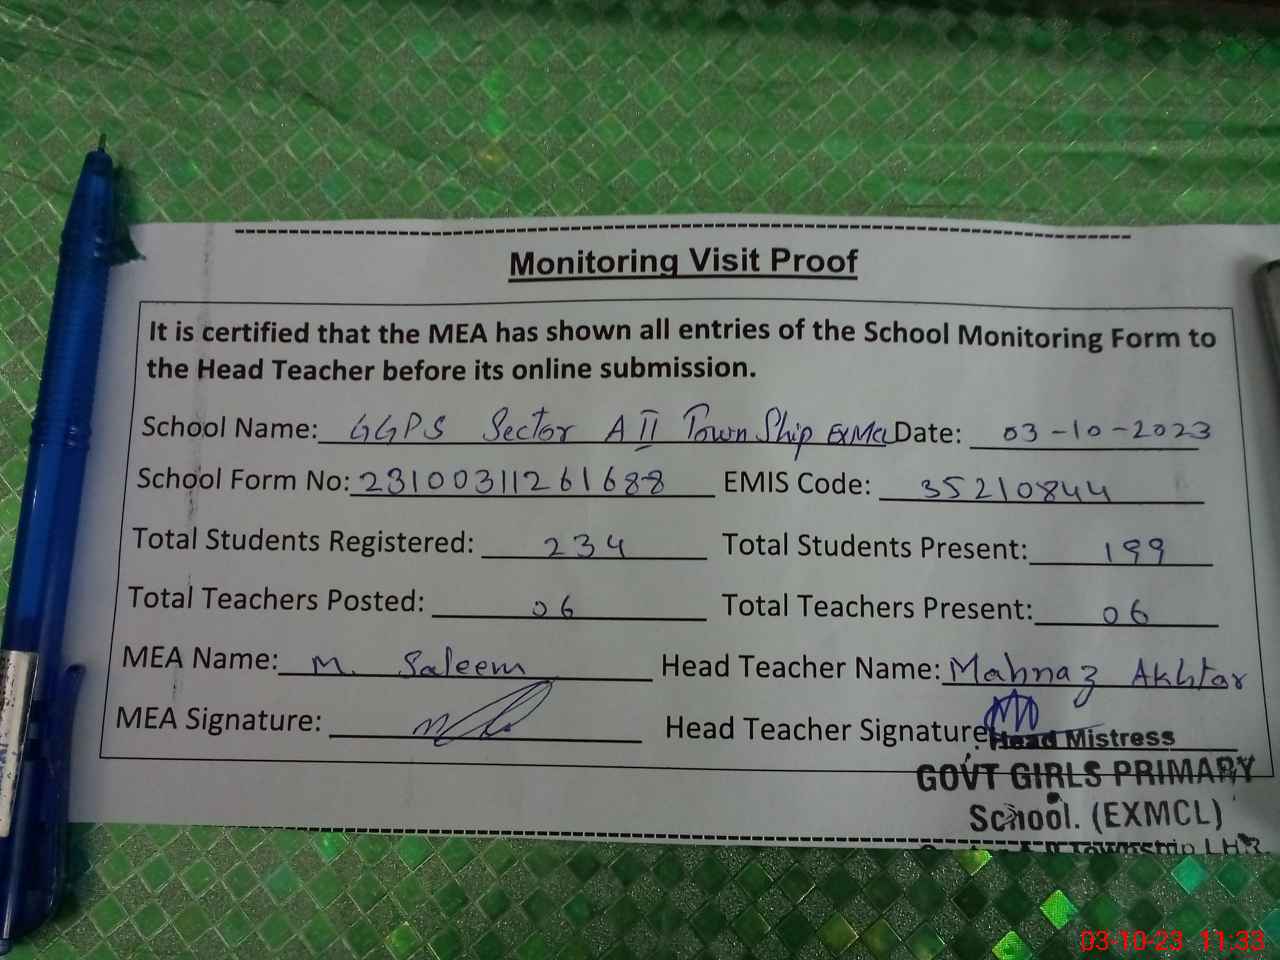 Monitoring Visit Proof
It is certified that the MEA has shown all entries of the School Monitoring Form to
the Head Teacher before its online submission.
School Name: GGPS Sector A II Town Ship EXMCL Date: 03-10-2023
School Form No: 23100311261688 EMIS Code: 35210844
Total Students Registered: 234 Total Students Present: 199
Total Teachers Posted: 06 Total Teachers Present: 06
MEA Name: M. Saleem Head Teacher Name: Mahnaz Akhtar
MEA Signature: Head Teacher Signature
Head Mistress
GOVT GIRLS PRIMARY
School. (EXMCL)
Township LHR
03-10-23 11:33